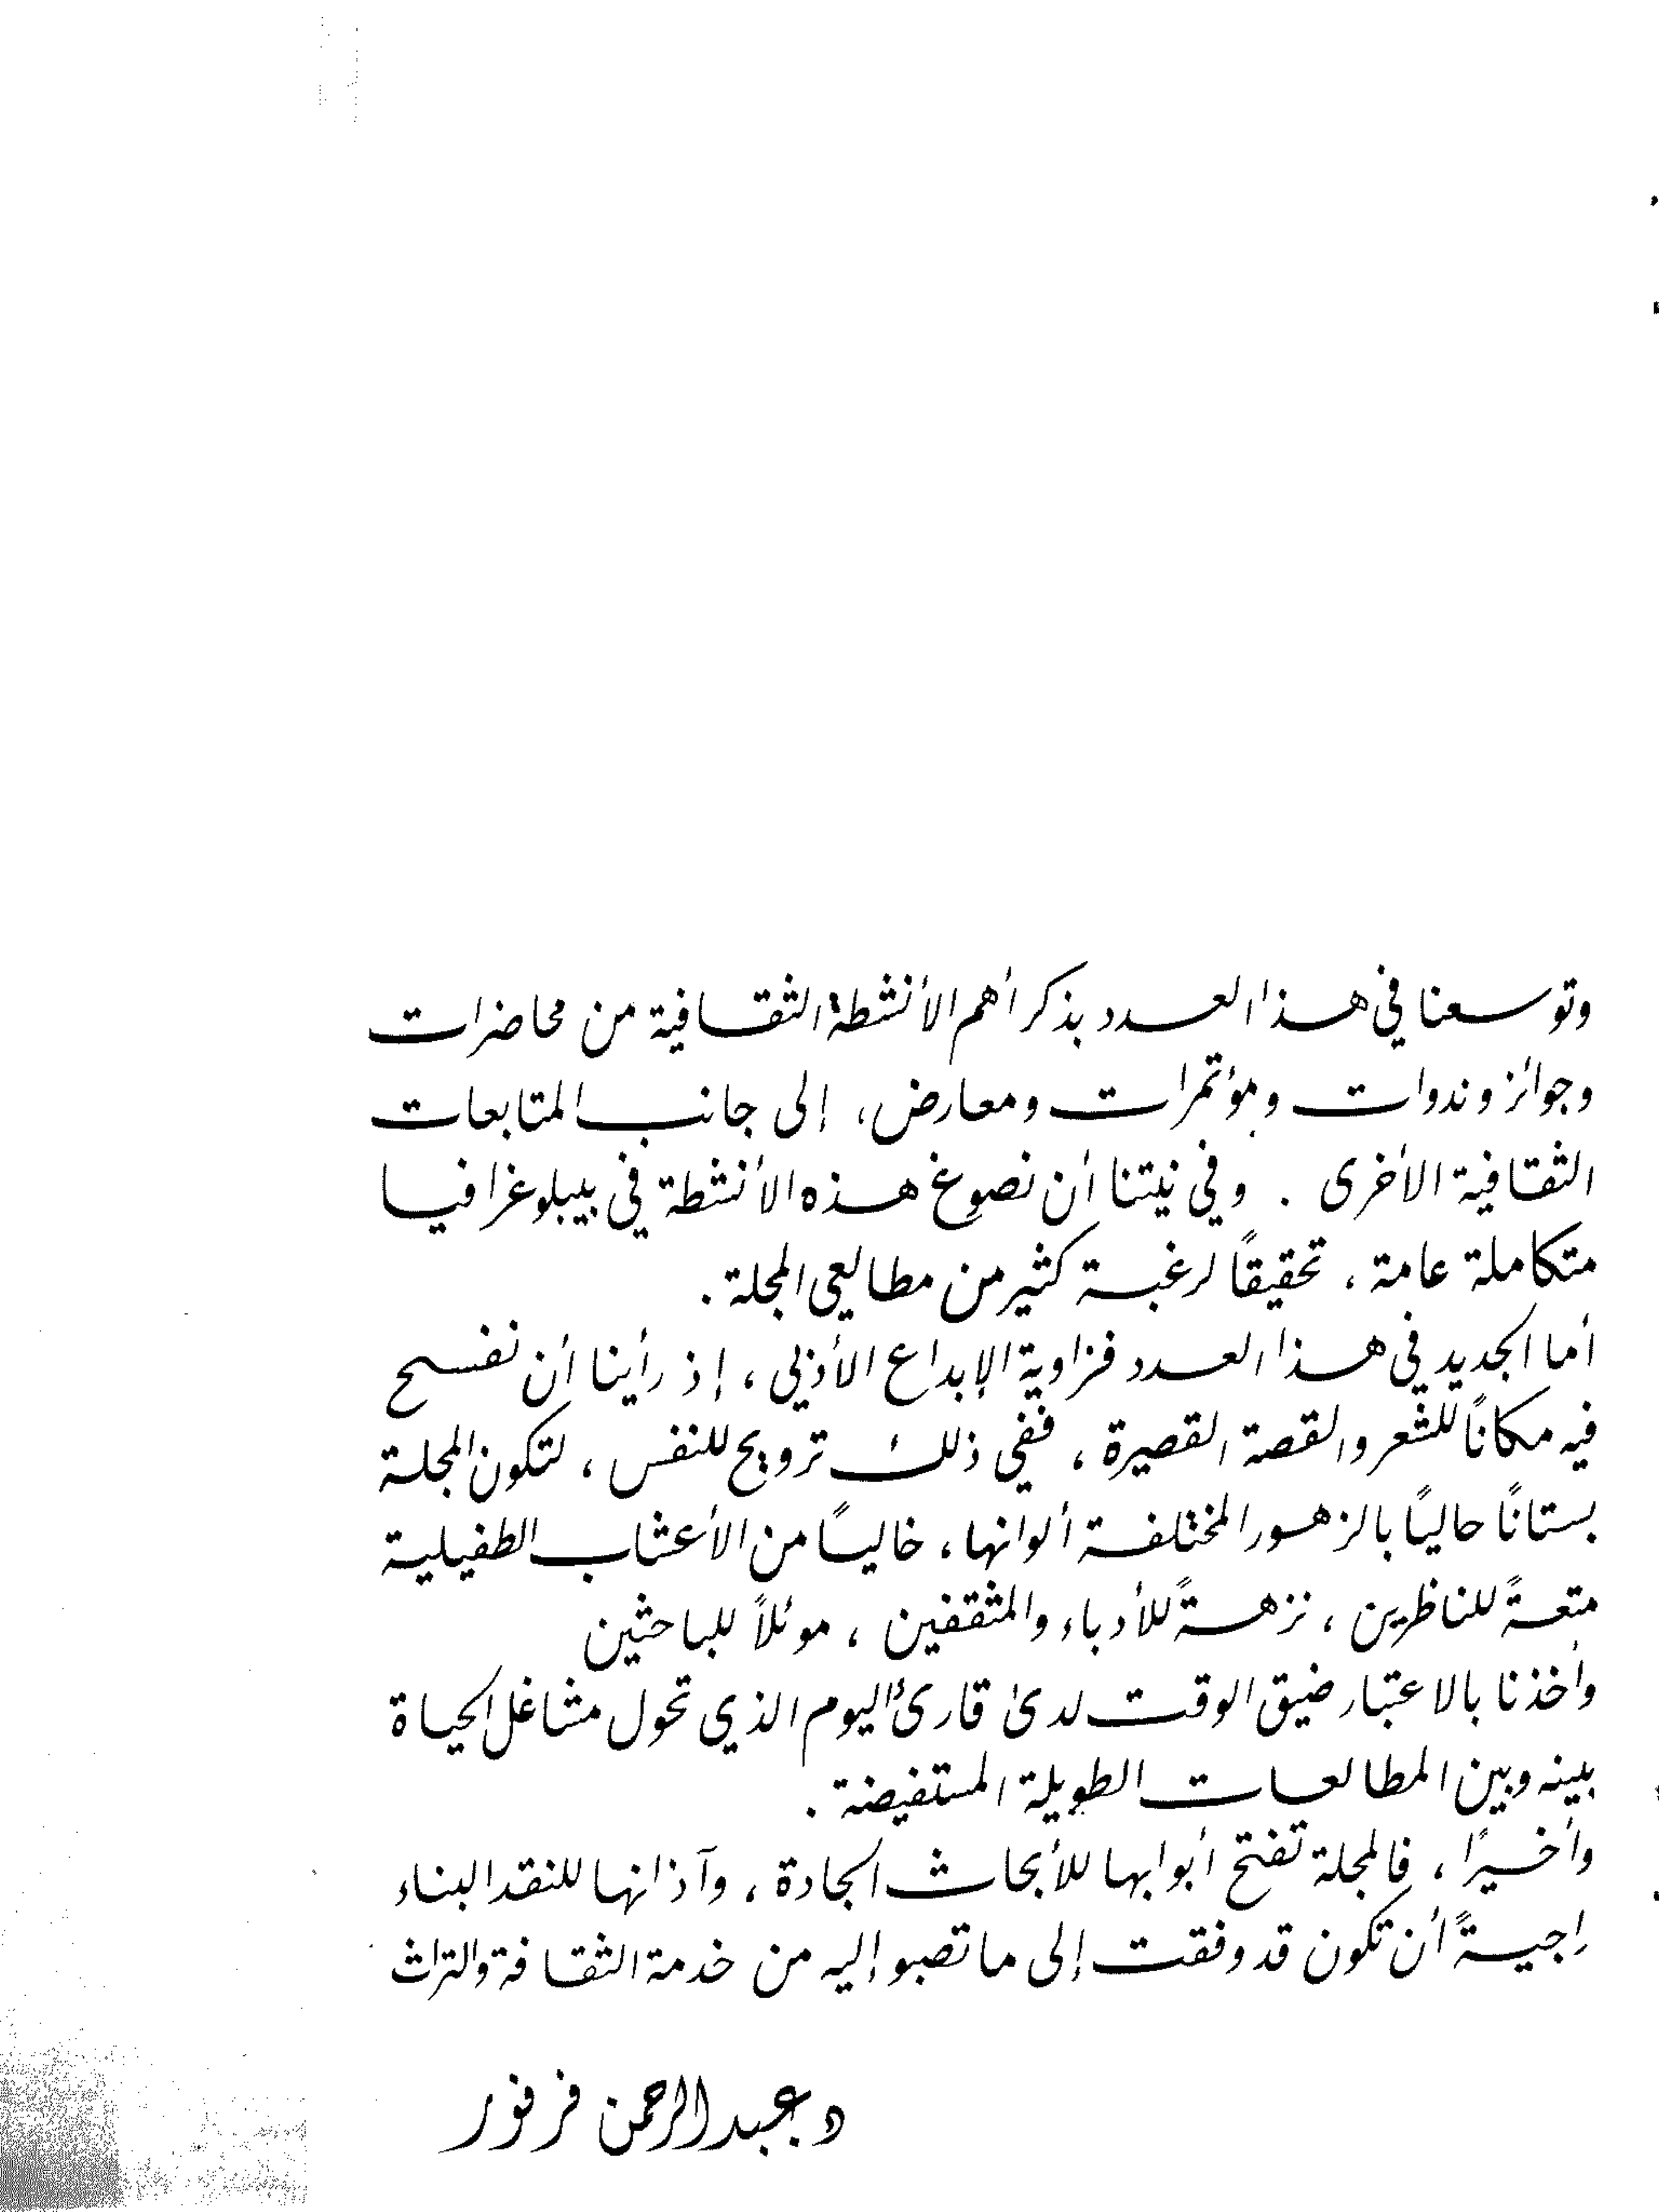 وتوسعنا في هذا العدد بذكر أهم الأنشطة الثقافية من محاضرات
وجوائز وندوات ومؤتمرات ومعارض، إلى جانب المتابعات
الثقافية الأخرى . وفي نيتنا أن نصوغ هذه الأنشطة في بيبلوغرافيا
متكاملة عامة ، تحقيقاً لرغبة كثير من مطالعي المجلة .
أما الجديد في هذا العدد فزاوية الإبداع الأدبي ، إذ رأينا أن نفسح
فيه مكاناً للشعر والقصة القصيرة ، ففي ذلك ترويح للنفس ، لتكون المجلة
بستاناً حالياً بالزهور المختلفة ألوانها ، خالياً من الأعشاب الطفيلية
متعةً للناظرين ، نزهةً للأدباء والمثقفين ، موئلاً للباحثين
وأخذنا بالاعتبار ضيق الوقت لدى قارئ اليوم الذي تحول مشاغل الحياة
بينه وبين المطالعات الطويلة المستفيضة .
وأخيراً ، فالمجلة تفتح أبوابها للأبحاث الجادة ، وآذانها للنقد البناء
راجيةً أن تكون قد وفقت إلى ما تصبو إليه من خدمة الثقافة والتراث
د عبد الرحمن فرفور